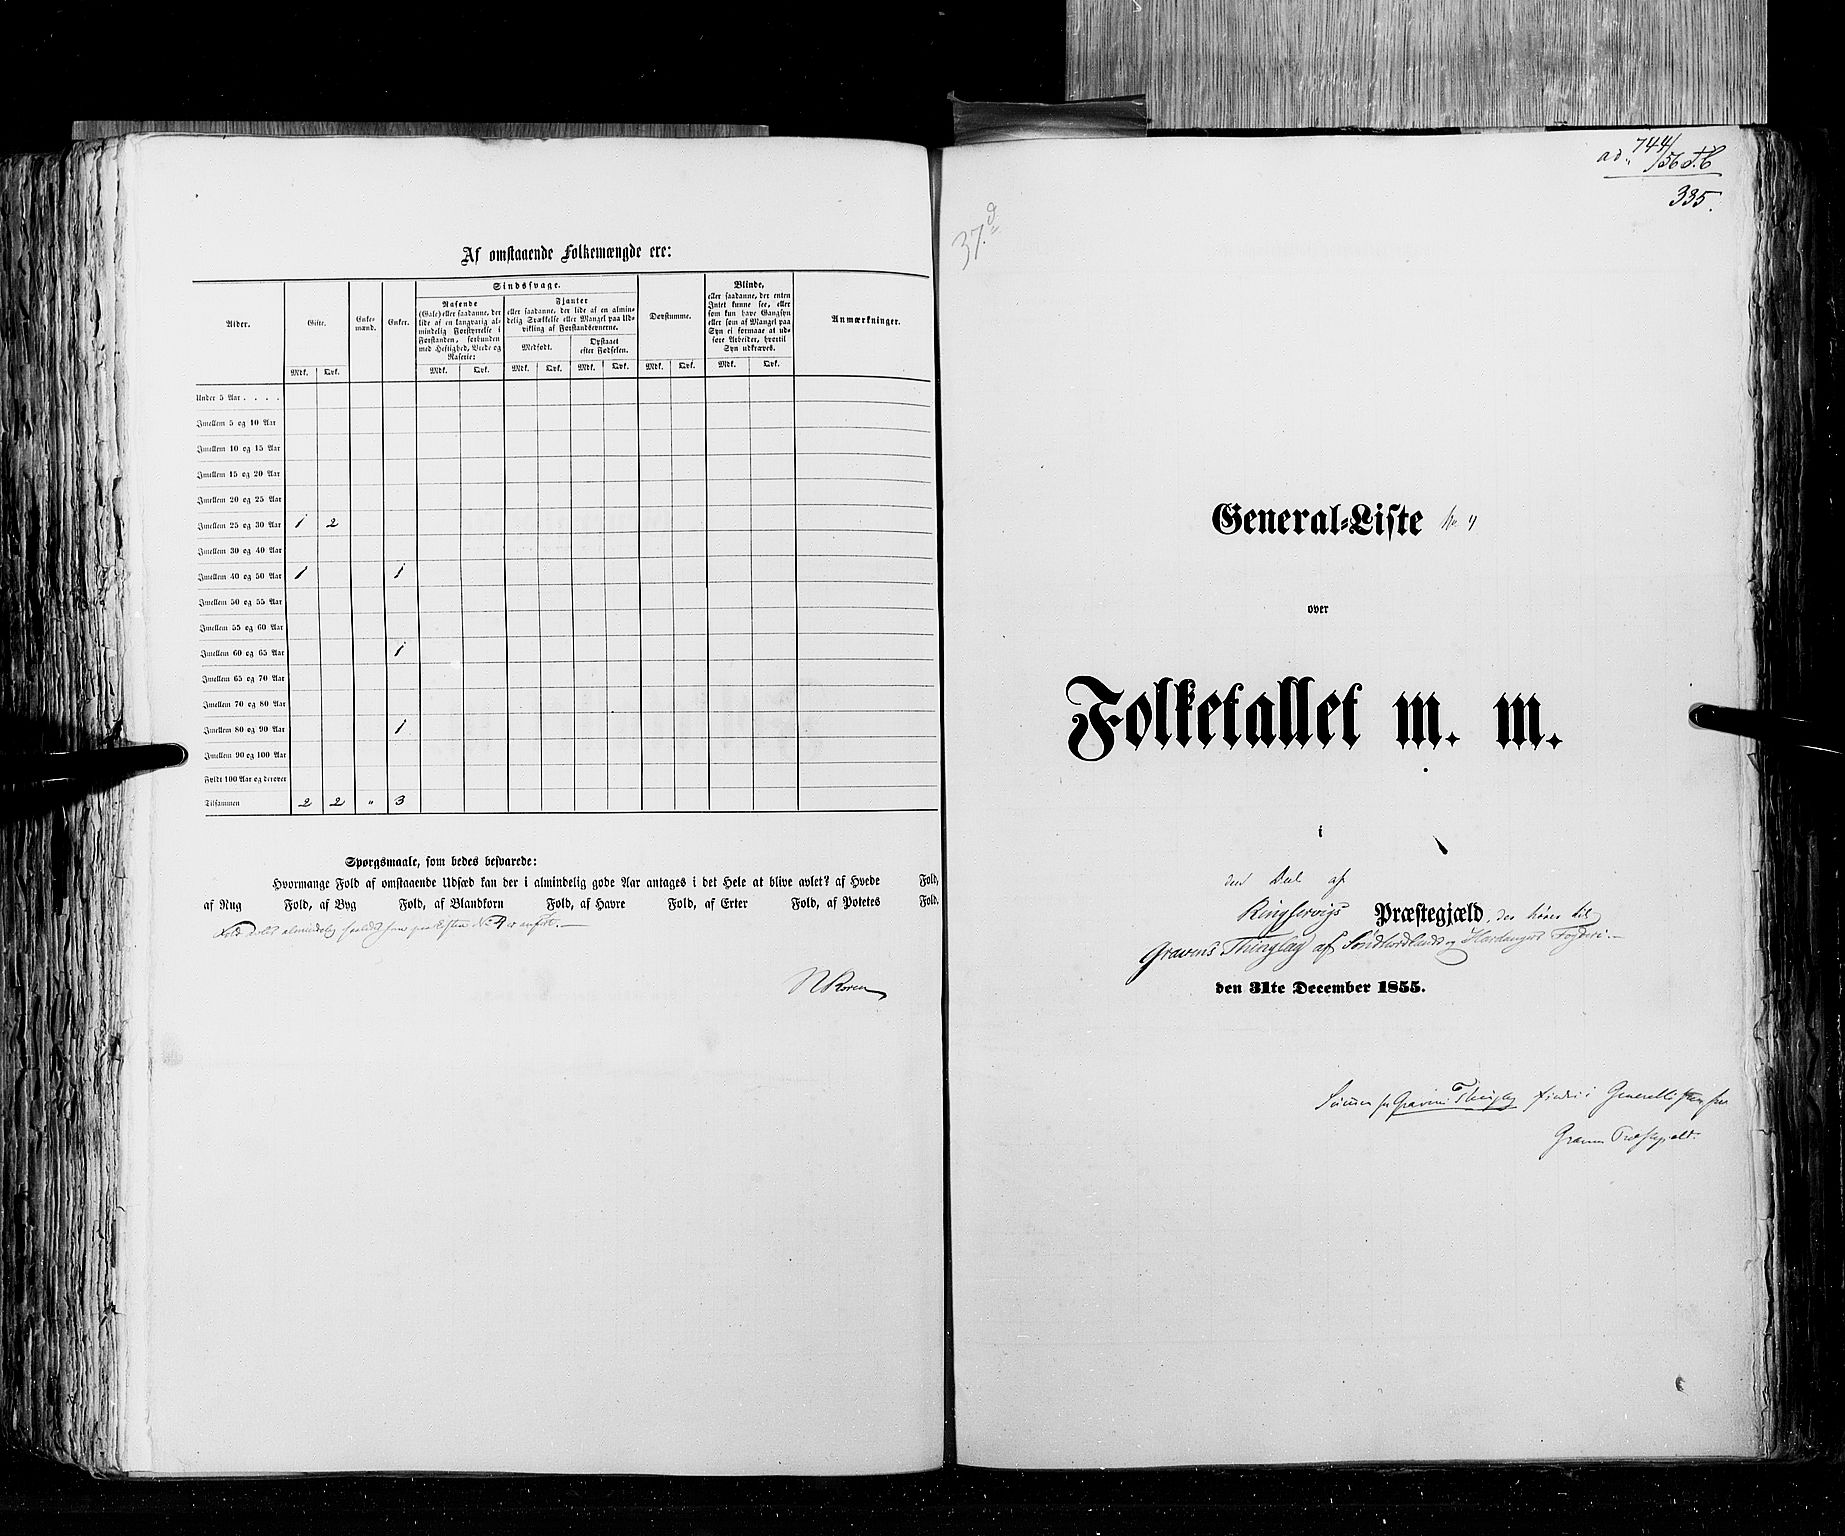 Af omstaaende Folkemængde ere:
Alder. Gifte. Enke-mænd. Enker. Sindssvage. Døvstumme. Blinde, Anmærkninger.
Rasende (Gale) eller saadanne, der lide af en langvarig almindelig Forstyrrelse i Forstanden, forbunden med Heftighed, Vrede og Raserie:
Fjanter eller saadanne, der lide af en almindelig Svækkelse eller Mangel paa Udvikling af Forstandsevnerne.
Medfødt. Opstaaet efter Fødselen.
eller saadanne, der enten Intet kunne see, eller som kun have Gangsyn eller som af Mangel paa Syn ei formaae at udføre Arbeider, hvortil Syn udkræves.
Mdk. Qvk. Mdk. Qvk. Mdk. Qvk. Mdk. Qvk. Mdk. Qvk. Mdk. Qvk.
Under 5 Aar . . . .
Imellem 5 og 10 Aar
Imellem 10 og 15 Aar
Imellem 15 og 20 Aar
Imellem 20 og 25 Aar
Imellem 25 og 30 Aar 1 2
Imellem 30 og 40 Aar
Imellem 40 og 50 Aar 1 1
Imellem 50 og 55 Aar
Imellem 55 og 60 Aar
Imellem 60 og 65 Aar 1
Imellem 65 og 70 Aar
Imellem 70 og 80 Aar
Imellem 80 og 90 Aar 1
Imellem 90 og 100 Aar
Fyldt 100 Aar og derover
Tilsammen 2 2 " 3
Spørgsmaale, som bedes besvarede:
Hvormange Fold af omstaaende Udsæd kan der i almindelig gode Aar antages i det Hele at blive avlet? af Hvede Fold,
af Rug Fold, af Byg Fold, af Blandkorn Fold, af Havre Fold, af Erter Fold, af Potetes Fold.
almindelig som paa Listen No 4 er anført.
ad. 744/56 F.C
335.
37.d
General-Liste No 4
over
Folketallet m. m.
i
den Deel af
Kingservigs Præstegjæld, der hører til
Gravens Thinglag af Søndhordlands og Hardangers Fogderi
den 31te December 1855.
Summen for Gravens Thinglag findes i Generallisten for
Gravens Præstegjæld.